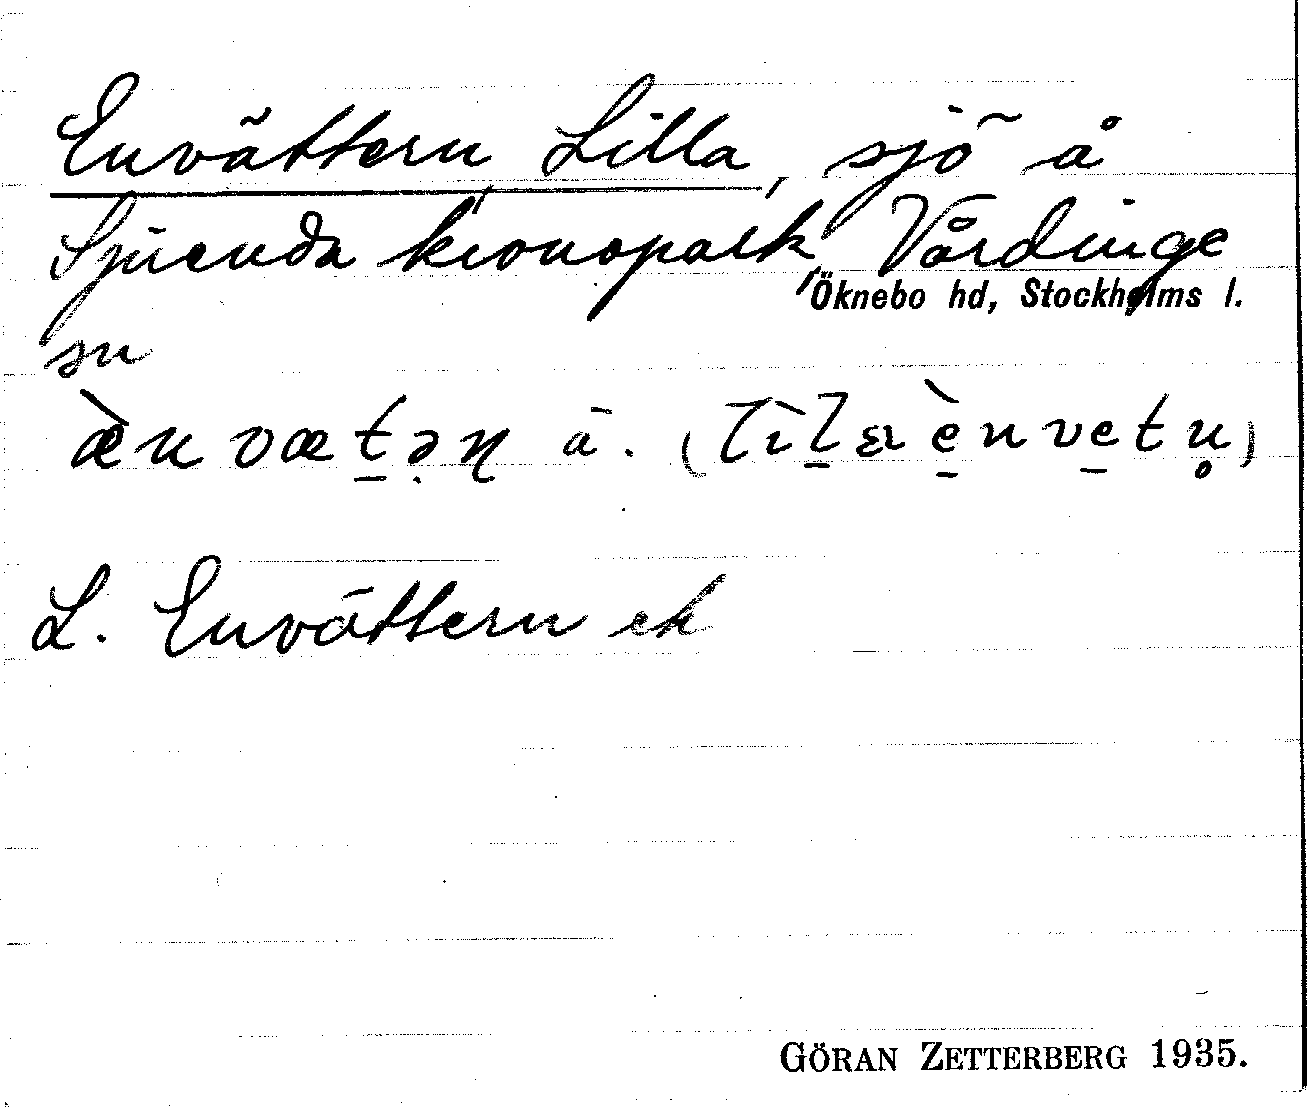 Envättern Lilla, sjö å
Sjuenda kronopark, Vårdinge
Öknebo hd, Stockholms l.
sn
æ̀nvæt̠ən ā. (lìl̠a è̠nve̠tn̥)
L. Envättern ek
GÖRAN ZETTERBERG 1935.